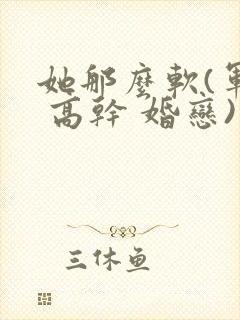 她那麼軟(軍
高幹 婚戀)
三休鱼